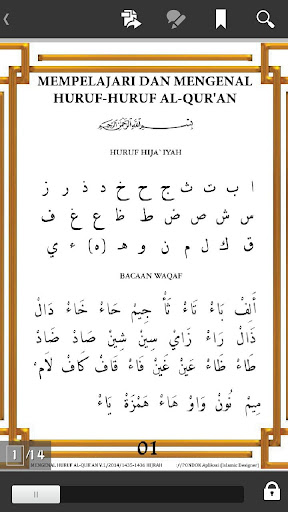 MEMPELAJARI DAN MENGENAL
HURUF-HURUF AL-QUR'AN
بِسْمِ اللَّهِ الرَّحْمَنِ الرَّحِيمِ
HURUF HIJA`IYAH
ا ب ت ث ج ح خ د ذ ر ز
س ش ص ض ط ظ ع غ ف
ق ك ل م ن و هـ (ه) ء ي
BACAAN WAQAF
أَلِفْ بَاءْ تَاءْ ثَاْ جِيْمْ حَاءْ خَاءْ دَالْ
ذَالْ رَاءْ زَايْ سِيْنْ شِيْنْ صَادْ ضَادْ
طَاءْ ظَاءْ عَيْنْ غَيْنْ فَاءْ قَافْ كَافْ لَامْ
مِيْمْ نُوْنْ وَاوْ هَاءْ هَمْزَةْ يَاءْ
01
1 /14
MENGENAL HURUF AL-QUR'AN V.1/2014/1435-1436 HIJRAH //PONDOK Aplikasi (Islamic Designer)